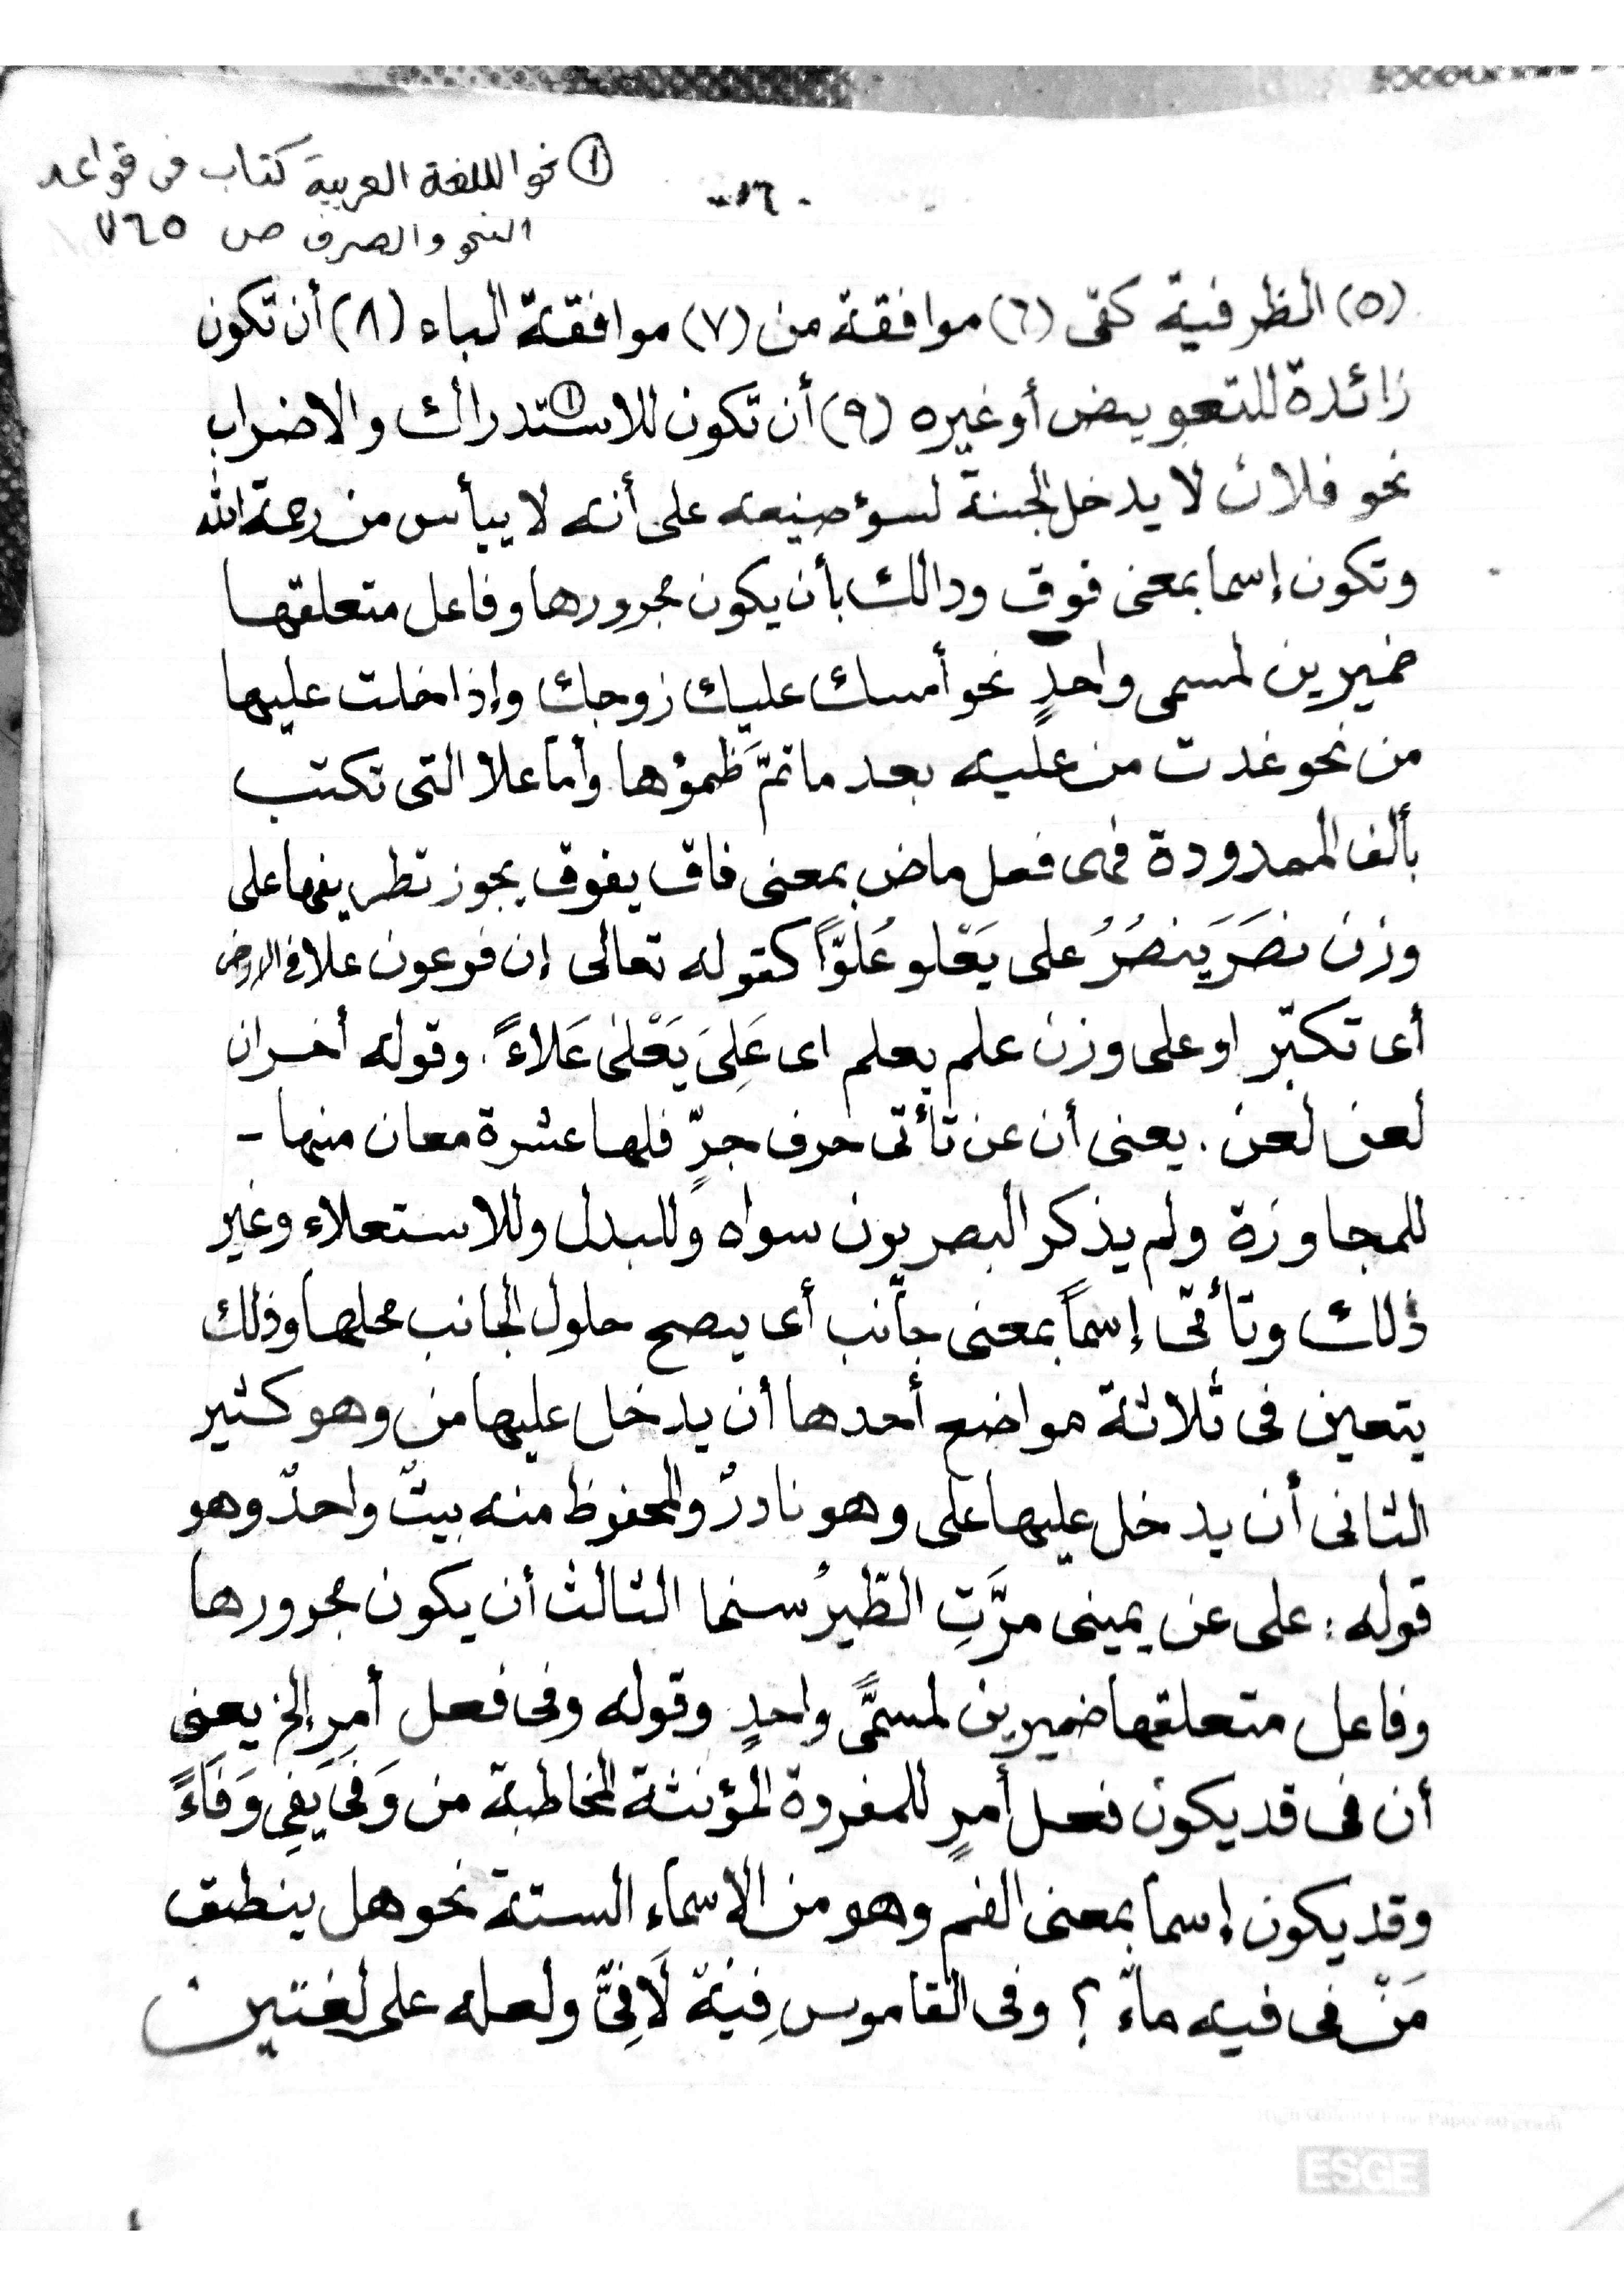 ① نحو اللغة العربية كتاب فى قواعد
النحو والصرف ص ٧٦٥
-١٦-
(٥) الظرفية كفى (٦) موافقة من (٧) موافقة الباء (٨) أن تكون
زائدة للتعويض أو غيره (٩) أن تكون للاستدراك① والاضراب
نحو فلان لا يدخل الجنة لسؤ صنيعه على أنه لا ييأس من رحمة الله
وتكون إسما بمعنى فوق ودالك بأن يكون مجرورها وفاعل متعلقها
ضميرين لمسمى واحدٍ نحو أمسك عليك زوجك وإذا خلت عليها
من نحو غدت من عليه بعد ما تمَّ ظمؤها وأما علا التى تكتب
بألف الممدودة فهى فعل ماض بمعنى فاق يفوق يجوز تطريفها على
وزن نصَرَ يَنصُرُ على يَعْلو عُلوًّا كقوله تعالى إن فرعون علا فى الارض
أى تكبّر او على وزن علم يعلم اى عَلِىَ يَعْلىٰ عَلاءً. وقوله أخران
لعن لعن. يعنى أن عن تأتى حرف جرٍّ فلها عشرة معان منها -
للمجاوزة ولم يذكر البصريون سواه وللبدل وللاستعلاء وغير
ذلك وتأتى إسماً بمعنى جانب أى يصح حلول الجانب محلها وذلك
يتعين فى ثلاثة مواضع أحدها أن يدخل عليها من وهو كثير
الثانى أن يدخل عليها على وهو نادرٌ والمحفوظ منه بيتٌ واحدٌ وهو
قوله: على عن يمينى مرَّتِ الطّيرُ سنحا الثالث أن يكون مجرورها
وفاعل متعلقها ضميرين لمسمًّى واحدٍ وقوله وفى فعل أمرٍ إلخ يعنى
أن فى قد يكون فعل أمرٍ للمفردة المؤنثة المخاطبة من وَفَى يَفِى وَفَاءً
وقد يكون إسما بمعنى الفم وهو من الاسماء الستة نحو هل ينطق
مَنْ فى فيه ماءٌ ؟ وفى القاموس فِيّة لَا فِىَّ ولعله على لغتين
ESGE